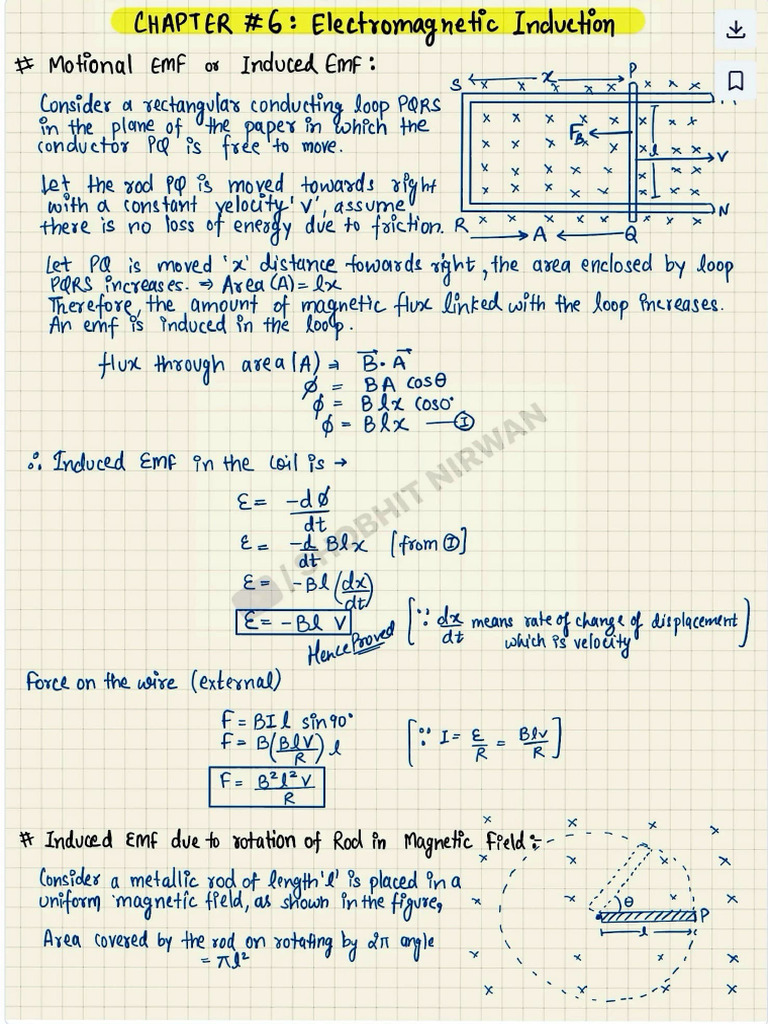 CHAPTER #6: Electromagnetic Induction
# Motional Emf or Induced Emf:
Consider a rectangular conducting loop PQRS
in the plane of the paper in which the
conductor PQ is free to move.
Let the rod PQ is moved towards right
with a constant velocity 'v', assume
there is no loss of energy due to friction.
S x P
FB l V
R A Q N
Let PQ is moved 'x' distance towards right, the area enclosed by loop
PQRS increases. ⇒ Area (A) = lx
Therefore, the amount of magnetic flux linked with the loop increases.
An emf is induced in the loop.
flux through area (A) ⇒ B⃗ · A⃗
ϕ = BA cosθ
ϕ = Blx cos0°
ϕ = Blx —Ⓘ
∴ Induced Emf in the coil is →
ε = -dϕ/dt
ε = -d/dt Blx [from Ⓘ]
ε = -Bl (dx/dt)
ε = -Bl V
Hence Proved
[∵ dx/dt means rate of change of displacement
which is velocity]
Force on the wire (external)
F = BIl sin90°
F = B(BlV/R) l [∵ I = ε/R = Blv/R]
F = B²l²V/R
# Induced Emf due to rotation of Rod in Magnetic Field:-
Consider a metallic rod of length 'l' is placed in a
uniform magnetic field, as shown in the figure,
Area covered by the rod on rotating by 2π angle
= πl²
θ
P
l
/ SHOBHIT NIRWAN